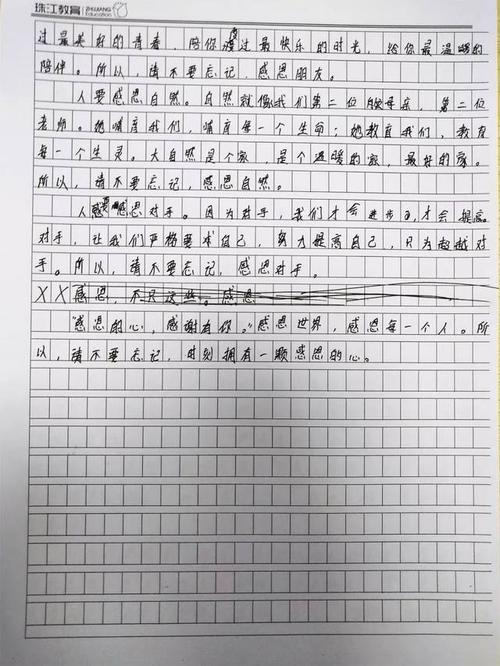 珠江教育 ZHUJIANG Education
过最美好的青春，陪你度过最快乐的时光，给你最温暖的
陪伴。所以，请不要忘记，感恩朋友。
人要感恩自然。自然就像我们第二位母亲，第二位
老师。她哺育我们，哺育每一个生命；她教育我们，教育
每一个生灵。大自然是个家，是个温暖的家，最好的家。
所以，请不要忘记，感恩自然。
人要感恩对手。因为对手，我们才会进步，才会提高。
对手，让我们严格要求自己，努力提高自己，只为超越对
手。所以，请不要忘记，感恩对手。
感恩，不只这些。感恩
“感恩的心，感谢有你。”感恩世界，感恩每一个人。所
以，请不要忘记，时刻拥有一颗感恩的心。